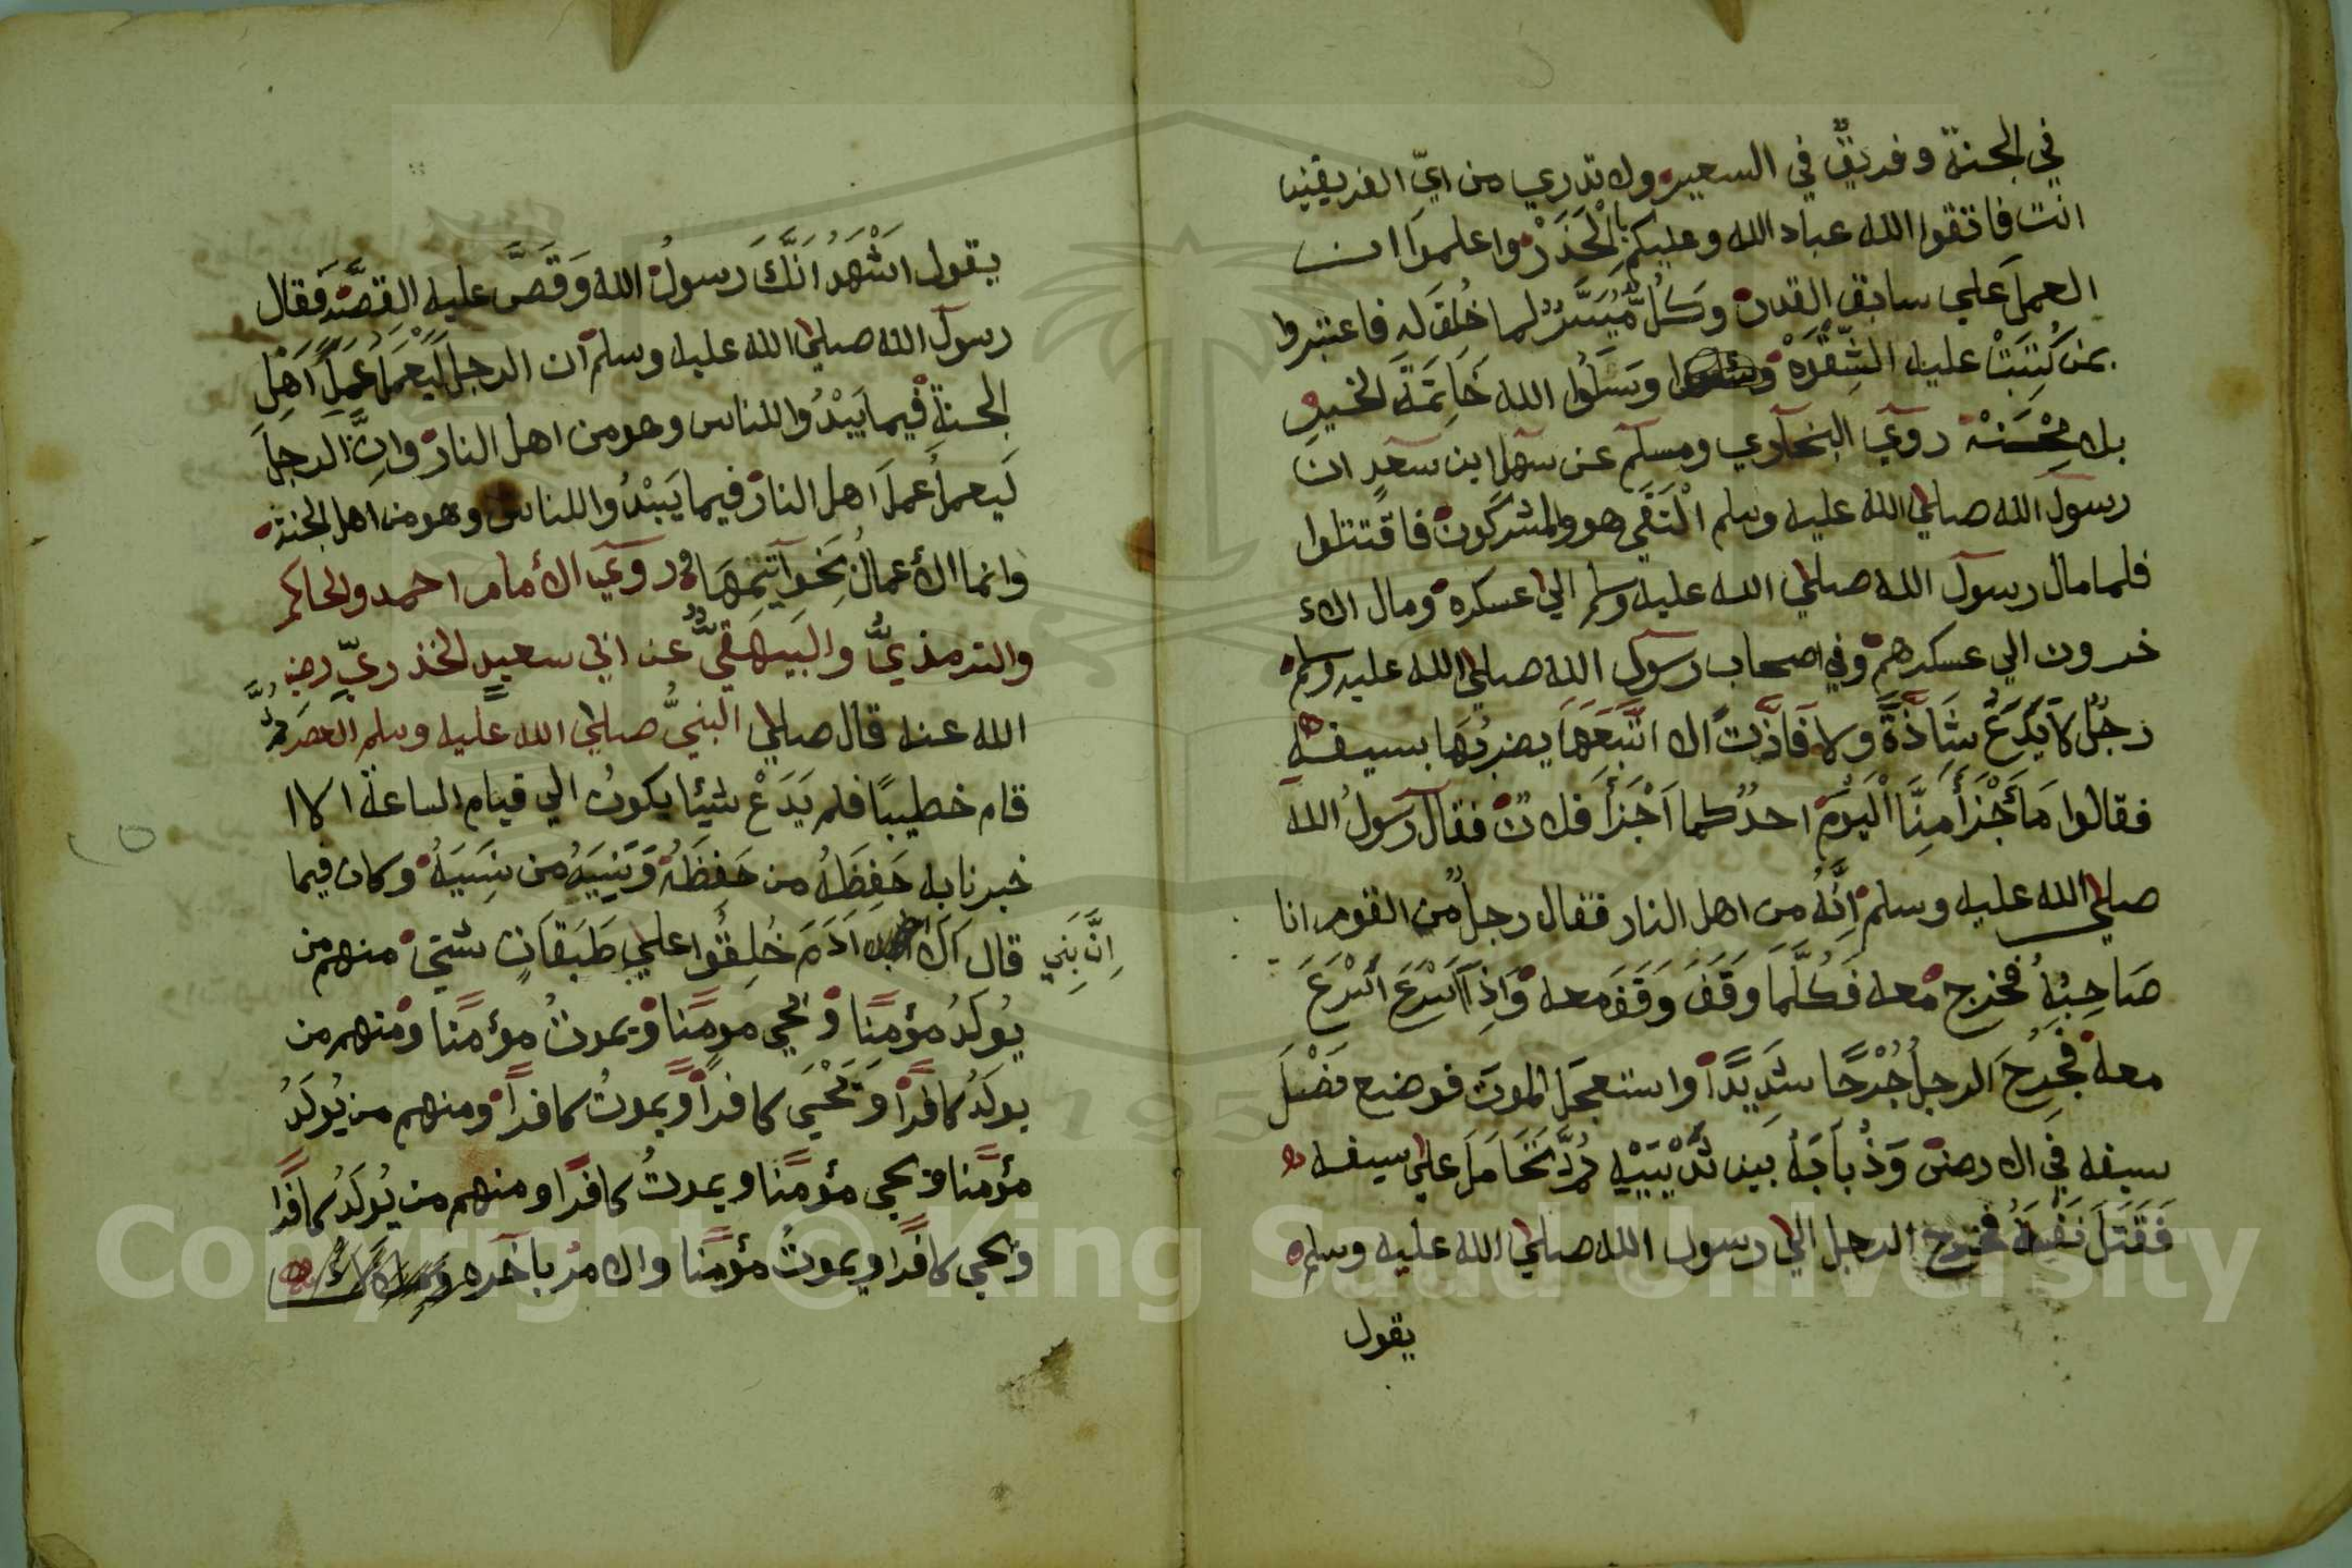 في الجنة وفريق في السعير ولا تدري من ايّ الفريقين
انت فاتقوا الله عباد الله وعليكم بالْحَذَرْ واعلموا ان
العمل علي سابق القدر وكُلٌّ مُّيَسَّرٌ لما خُلِقَ له فاعتبروا
بمن كُتِبَتْ عليه الشِّقْوَهْ وسَلُوا الله خَاتِمَةَ الخير
بلا مِحْسَنَهْ روي البخاري ومسلم عن سهل ابن سعدٍ ان
رسول الله صلي الله عليه وسلم الْتَقَي هو والمشركون فاقتتلوا
فلما مال رسول الله صلي الله عليه وسلم الي عسكره ومال الاء
خرون الي عسكرهم وفي اصحاب رسول الله صلي الله عليه وسلم
رجُلٌ لا يَدَعُ شَاذَّةً ولا فَاذَّتً الا اتَّبَعَهَا يضربُهَا بسيفه
فقالوا مَا أَجْزَأَ مِنَّا الْيَوْمَ احدٌ كما اَجْزَأَ فلانٌ فقال رسولُ الله
صلي الله عليه وسلم اِنَّهُ من اهل النار فقال رجلٌ من القوم انا
صَاحِبُهُ فخرج معه فَكُلَّمَا وَقَفَ وَقَفَ معه وَاِذَا اَسْرَعَ اَسْرَعَ
معه فَجُرِحَ الرجلُ جُرْحًا شَدِيدًا واستعجل الموتَ فوضع نَصْلَ
سيفه في الارض وَذُبَابَهُ بين ثَدْيَيْهِ ثُمَّ تَحَامَلَ علي سيفه
فَقَتَلَ نَفْسَهُ فخرج الرجل الي رسول الله صلي الله عليه وسلم
يقول
يقول اَشْهَدُ اَنَّكَ رسولُ الله وَقَصَّ عليه القِصَّةَ فقال
رسول الله صلي الله عليه وسلم ان الرجل لَيَعْمَلُ عَمَلَ اَهْلِ
الجنةِ فيما يَبْدُوا للناس وهو من اهل النار وانَّ الرجلَ
لَيعملُ عملَ اهل النار فيما يَبْدُوا للناس وهو من اهل الجنة
وانما الأعمالُ بِخَوَاتِمِهَا وروي الأمام احمد والحاكم
والترمذيُّ والبَيهَقيُّ عن ابي سعيدٍ الخذريِّ رضي
الله عنه قال صلي النبيُّ صلي الله عليه وسلم العصرَ ثُمَّ
قام خطيبًا فلم يَدَعْ شيئا يكونُ الي قيام الساعة الا ا
خبرنا به حَفِظَهُ من حَفِظَهُ وَنَسِيَهُ من نَسِيَهُ وكان فيما
قال الا اَدَمَ خُلِقُوا علي طَبَقَاتٍ شتيَ منهم من
اِنَّ بَنِي
يُولَدُ مؤمِنًا ويحيي مومنًا ويموتُ مؤمنًا ومنهم من
يولَدُ كافرًا وَيَحْيَي كافرًا ويموتُ كافرًا ومنهم من يُولَدُ
مؤمنًا ويحيي مؤمنًا ويموتُ كافرًا ومنهم من يُولَدُ كافرًا
ويحيي كافرًا ويموتُ مؤمنًا والامر باخره
Copyright © King Saud University
195